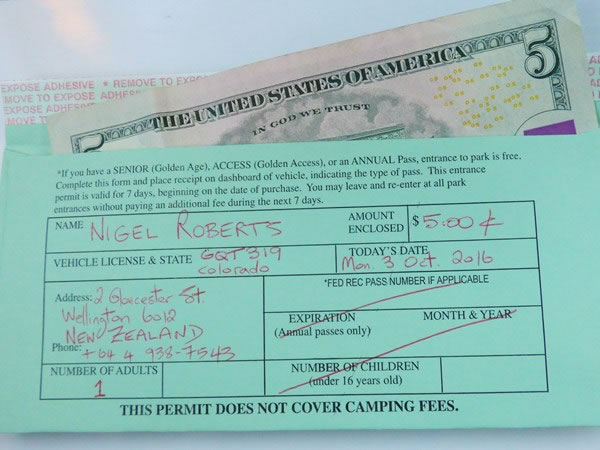 EXPOSE ADHESIVE * REMOVE TO EXPO
MOVE TO EXPOSE ADHES
EXPOSE ADHESIV
MOVE T
5 THE UNITED STATES OF AMERICA 5
IN GOD WE TRUST
*If you have a SENIOR (Golden Age), ACCESS (Golden Access), or an ANNUAL Pass, entrance to park is free.
Complete this form and place receipt on dashboard of vehicle, indicating the type of pass. This entrance
permit is valid for 7 days, beginning on the date of purchase. You may leave and re-enter at all park
entrances without paying an additional fee during the next 7 days.
NAME NIGEL ROBERTS AMOUNT ENCLOSED $ 5.00 ¢
VEHICLE LICENSE & STATE GQT319 colorado TODAY'S DATE Mon. 3 Oct. 2016
*FED REC PASS NUMBER IF APPLICABLE
Address: 2 Gloucester St.
Wellington 6012
NEW ZEALAND
Phone: +64 4 938-7543
EXPIRATION MONTH & YEAR
(Annual passes only)
NUMBER OF ADULTS
1
NUMBER OF CHILDREN
(under 16 years old)
THIS PERMIT DOES NOT COVER CAMPING FEES.